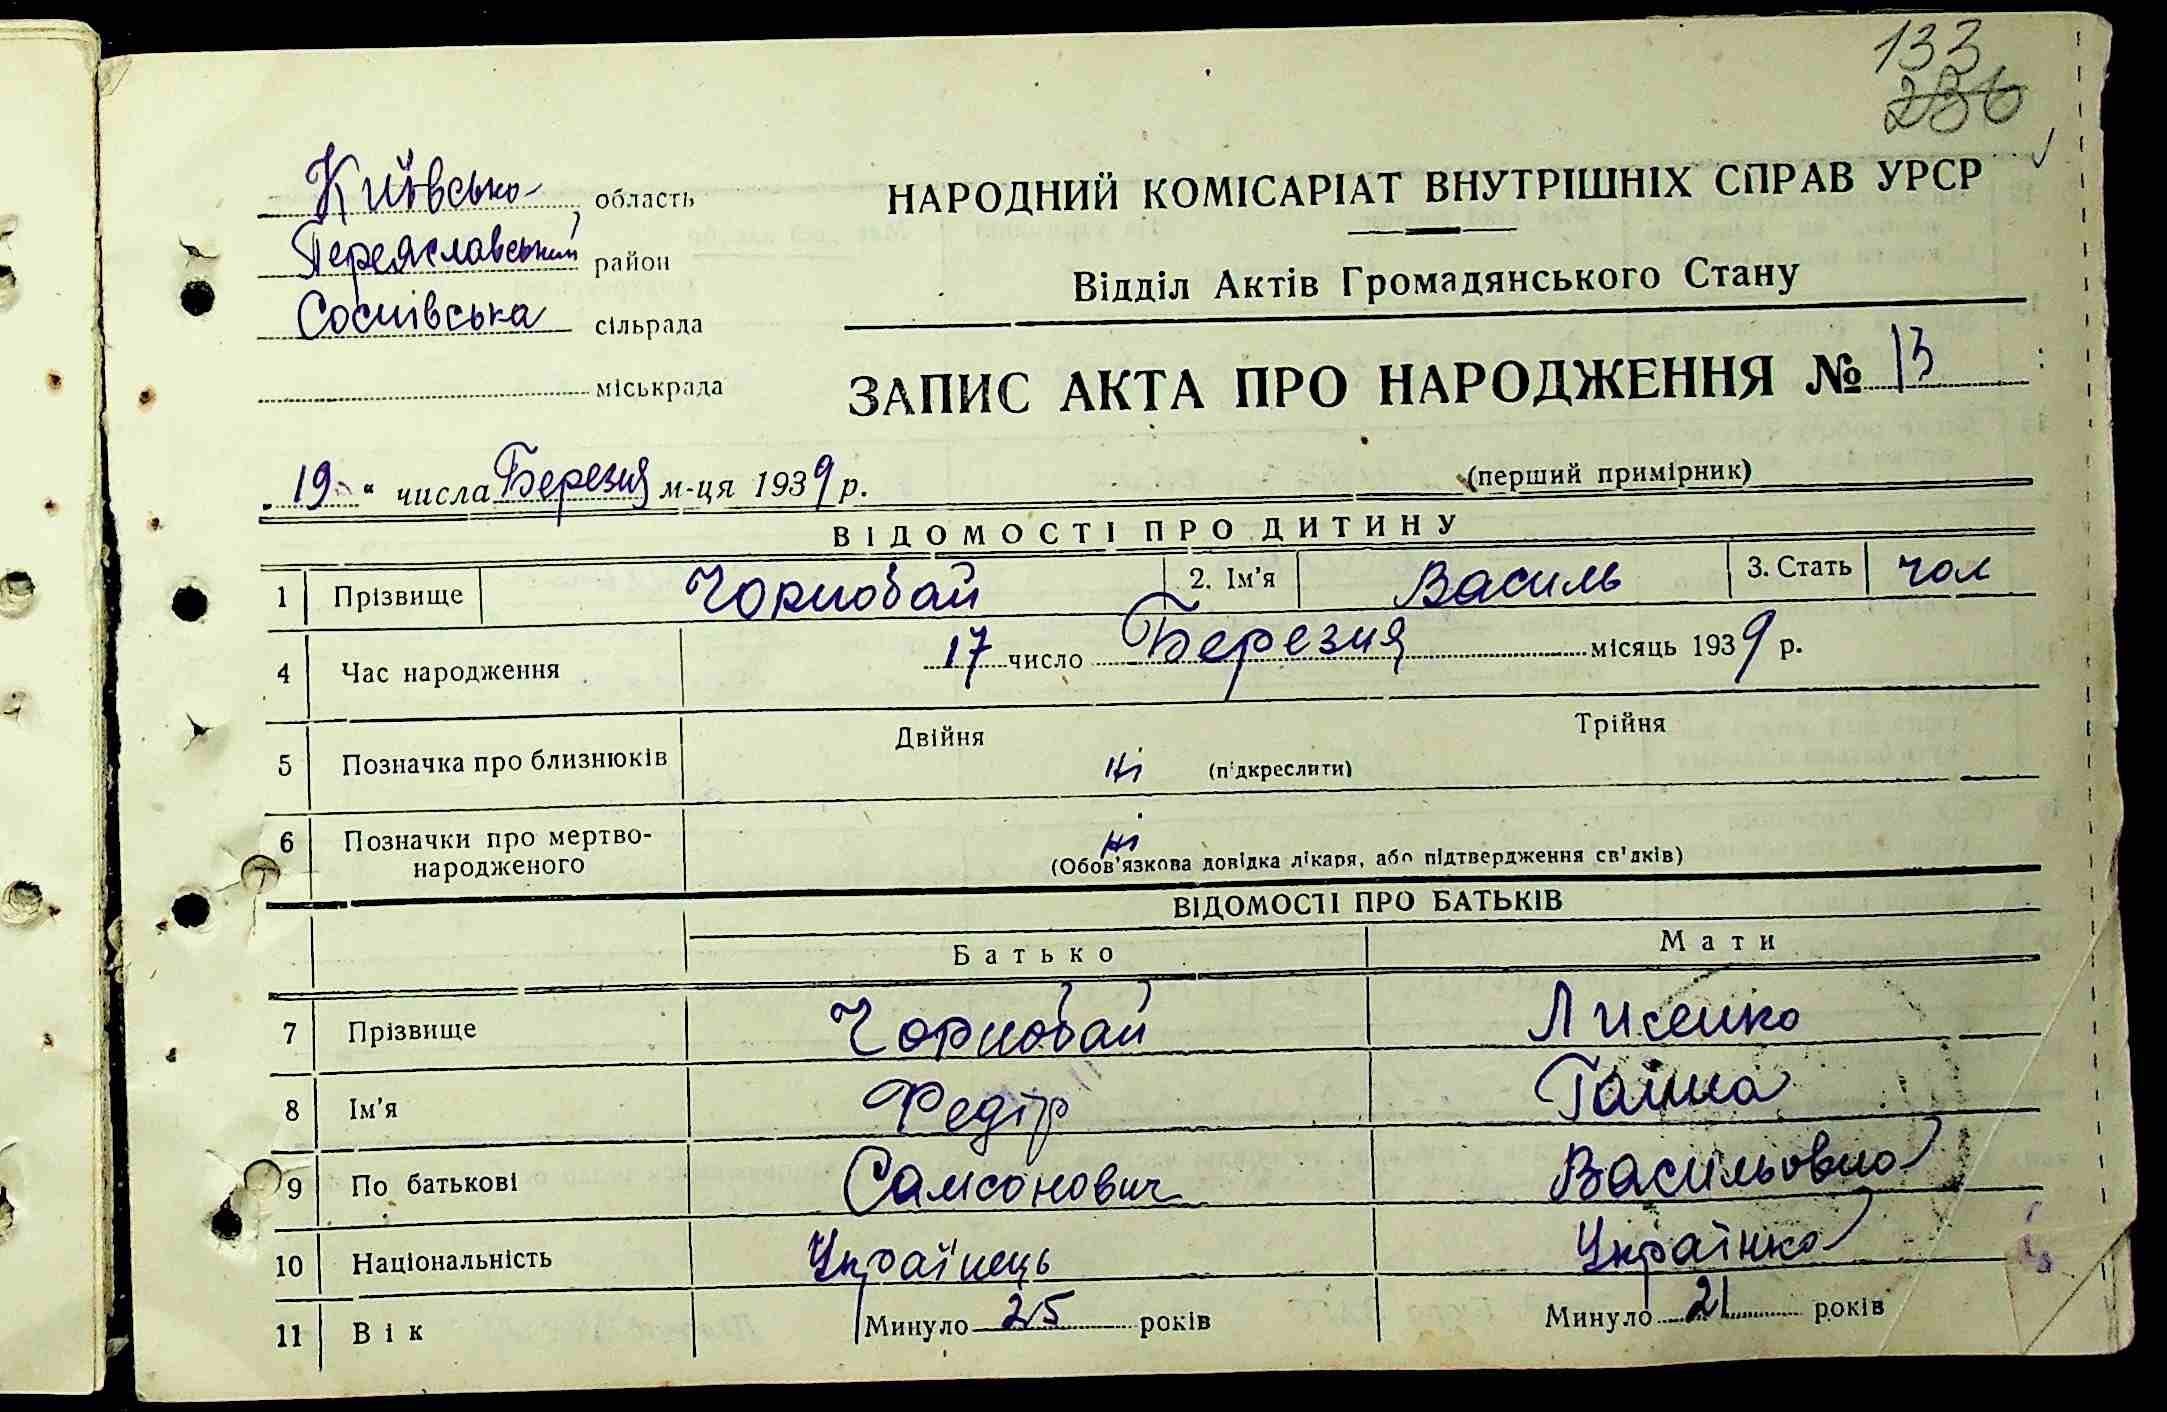 133
236
Київсько- область
НАРОДНИЙ КОМІСАРІАТ ВНУТРІШНІХ СПРАВ УРСР
Переяславський район
Відділ Актів Громадянського Стану
Соснівська сільрада
міськрада
ЗАПИС АКТА ПРО НАРОДЖЕННЯ № 13
„19“ числа Березня м-ця 1939 р.
(перший примірник)
ВІДОМОСТІ ПРО ДИТИНУ
1 Прізвище Чорнобай 2. Ім'я Василь 3. Стать чол
4 Час народження 17 число Березня місяць 1939 р.
5 Позначка про близнюків Двійня ні (підкреслити) Трійня
6 Позначки про мертво-
народженого ні
(Обов'язкова довідка лікаря, або підтвердження св'дків)
ВІДОМОСТІ ПРО БАТЬКІВ
Батько Мати
7 Прізвище Чорнобай Лисенко
8 Ім'я Федір Ганна
9 По батькові Самсонович Васильовна
10 Національність Українець Українка
11 Вік Минуло 25 років Минуло 21 років